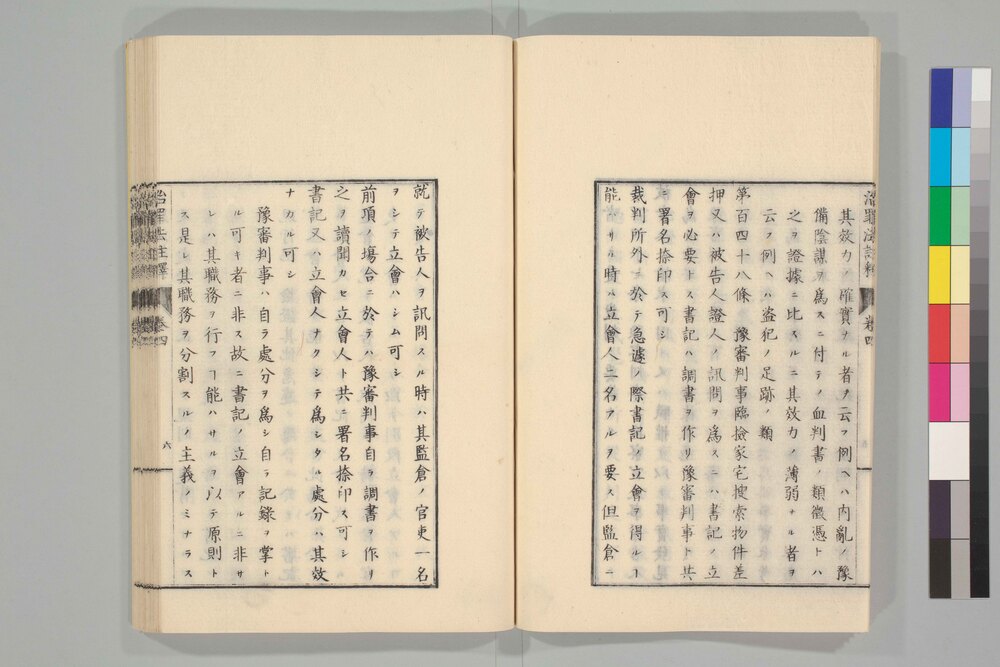 其效力ノ確實ナル者ヲ云フ例ヘハ内亂ノ豫
備陰謀ヲ為スニ付テノ血判書ノ類徴憑トハ
之ヲ證據ニ比スルニ其效力ノ薄弱ナル者ヲ
云フ例ヘハ盗犯ノ足跡ノ類
第百四十八條 豫審判事臨檢家宅搜索物件差
押又ハ被告人證人ノ訊問ヲ為スニハ書記ノ立
會ヲ必要トス書記ハ調書ヲ作リ豫審判事ト共
ニ署名捺印ス可シ
裁判所外ニ於テ急遽ノ際書記ノ立會ヲ得ルヿ
能ハサル時ハ立會人二名アルヲ要ス但監倉ニ
就テ被告人ヲ訊問スル時ハ其監倉ノ官吏一名
ヲシテ立會ハシム可シ
前項ノ塲合ニ於テハ豫審判事自ラ調書ヲ作リ
之ヲ讀聞カセ立會人ト共ニ署名捺印ス可シ
書記又ハ立會人ナクシテ為シタル處分ハ其效
ナカル可シ
豫審判事ハ自ラ處分ヲ為シ自ラ記錄ヲ掌ト
ル可キ者ニ非ス故ニ書記ノ立會アルニ非サ
レハ其職務ヲ行フヿ能ハサルヲ以テ原則ト
ス是レ其職務ヲ分割スルノ主義ノミナラス
治罪法註釋 卷四
六